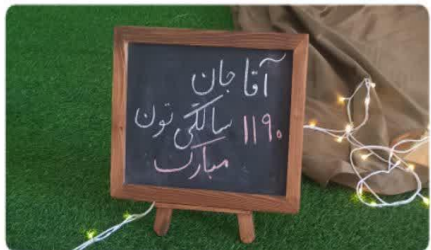 آقا جان
۱۱۹۰ سالگی تون
مبارک